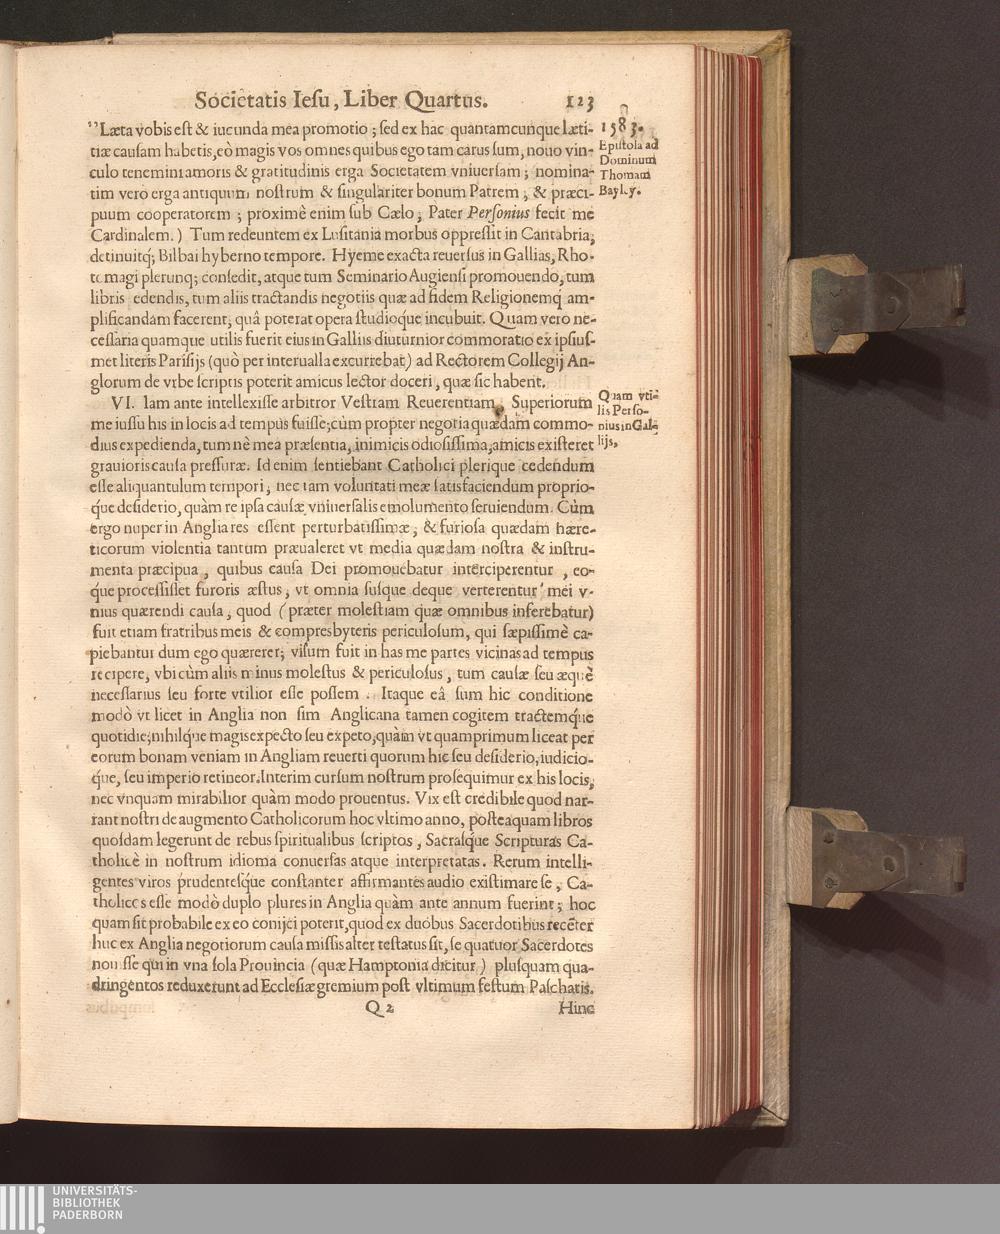 Societatis Iesu, Liber Quartus. 123
"Læta vobis est & iucunda mea promotio; sed ex hac quantamcunque læti-
tiæ causam habetis, eò magis vos omnes quibus ego tam carus sum, nouo vin-
culo tenemini amoris & gratitudinis erga Societatem vniuersam; nomina-
tim vero erga antiquum nostrum & singulariter bonum Patrem, & præci-
puum cooperatorem; proximè enim sub Cælo, Pater Personius fecit me
Cardinalem.) Tum redeuntem ex Lusitania morbus oppressit in Cantabria,
detinuitq; Bilbai hyberno tempore. Hyeme exacta reuersus in Gallias, Rho-
tomagi plerunq; consedit, atque tum Seminario Augiensi promouendo, tum
libris edendis, tum aliis tractandis negotiis quæ ad fidem Religionemq am-
plificandam facerent, quâ poterat opera studioque incubuit. Quam vero ne-
cessaria quamque utilis fuerit eius in Galliis diuturnior commoratio ex ipsius-
met literis Parisijs (quò per interualla excurrebat) ad Rectorem Collegij An-
glorum de vrbe scriptis poterit amicus lector doceri, quæ sic habent.
VI. Iam ante intellexisse arbitror Vestram Reuerentiam, Superiorum
me iussu his in locis ad tempus fuisse; cùm propter negotia quædam commo-
dius expedienda, tum nè mea præsentia, inimicis odiosissima, amicis existeret
grauioris causa pressuræ. Id enim sentiebant Catholici plerique cedendum
esse aliquantulum tempori, nec tam voluntati meæ satisfaciendum proprio-
q́ue desiderio, quàm re ipsa causæ vniuersalis emolumento seruiendum. Cùm
ergo nuper in Anglia res essent perturbatissimæ, & furiosa quædam hære-
ticorum violentia tantum præualeret vt media quædam nostra & instru-
menta præcipua, quibus causa Dei promouebatur interciperentur, eo-
q́ue processisset furoris æstus, vt omnia susque deque verterentur mei v-
nius quærendi causa, quod (præter molestiam quæ omnibus inferebatur)
fuit etiam fratribus meis & compresbyteris periculosum, qui sæpissimè ca-
piebantur dum ego quærerer; visum fuit in has me partes vicinas ad tempus
recipere, vbi cùm aliis minus molestus & periculosus, tum causæ seu æquè
necessarius seu forte vtilior esse possem. Itaque eâ sum hic conditione
modò vt licet in Anglia non sim Anglicana tamen cogitem tractemq́ue
quotidie; nihilq́ue magis expecto seu expeto, quàm vt quamprimum liceat per
eorum bonam veniam in Angliam reuerti quorum hic seu desiderio, iudicio-
q́ue, seu imperio retineor. Interim cursum nostrum prosequimur ex his locis,
nec vnquam mirabilior quàm modo prouentus. Vix est credibile quod nar-
rant nostri de augmento Catholicorum hoc vltimo anno, posteaquam libros
quosdam legerunt de rebus spiritualibus scriptos, Sacrasq́ue Scripturas Ca-
tholicè in nostrum idioma conuersas atque interpretatas. Rerum intelli-
gentes viros prudentesq́ue constanter affirmantes audio existimare se, Ca-
tholicos esse modò duplo plures in Anglia quàm ante annum fuerint; hoc
quam sit probabile ex eo conijci poterit, quod ex duobus Sacerdotibus recẽter
huc ex Anglia negotiorum causa missis alter testatus sit, se quatuor Sacerdotes
nouisse qui in vna sola Prouincia (quæ Hamptonia dicitur) plusquam qua-
dringentos reduxerunt ad Ecclesiæ gremium post vltimum festum Paschatis.
Q 2 Hinc
1583.
Epistola ad
Dominum
Thomam
Bayley.
Quam vti-
lis Perso-
nius in Gal-
lijs,
UNIVERSITÄTS-
BIBLIOTHEK
PADERBORN